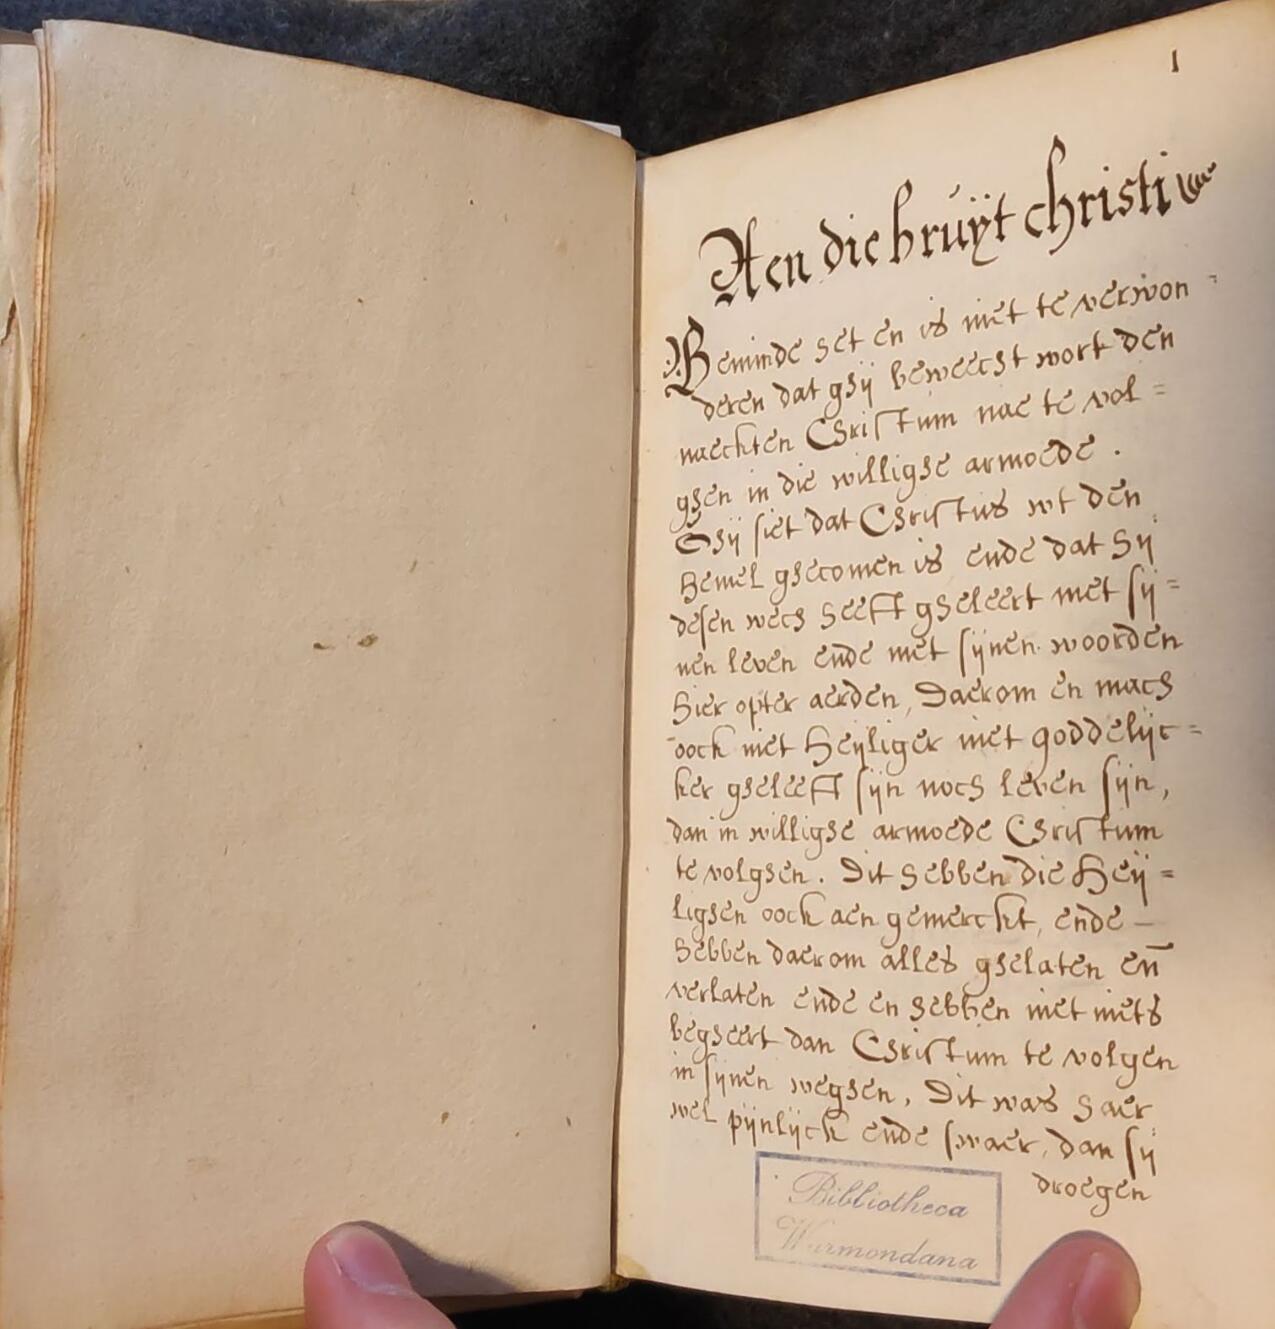 1
Aen die bruÿt christi
Beminde het en is niet te verwon
deren dat ghij beweecht wort den
naeckten Christum nae te vol =
ghen in die willighe armoede .
Ghij siet dat Christus wt den
hemel ghecomen is ende dat hij
desen wech heeft gheleert met sij =
nen leven ende met sijnen woorden
hier opter aerden, Daerom en mach
oock niet heijliger niet goddelijc =
ker gheleeft sijn noch leven sijn,
dan in willighe armoede Christum
te volghen . Dit hebben die heij =
lighen oock aen gemerckt, ende —
hebben daerom alles ghelaten en̄
verlaten ende en hebben niet niets
begheert dan Christum te volgen
in sijnen weghen, Dit was haer
wel pijnlijck ende swaer, dan sij
droegen
Bibliotheca
Warmondana